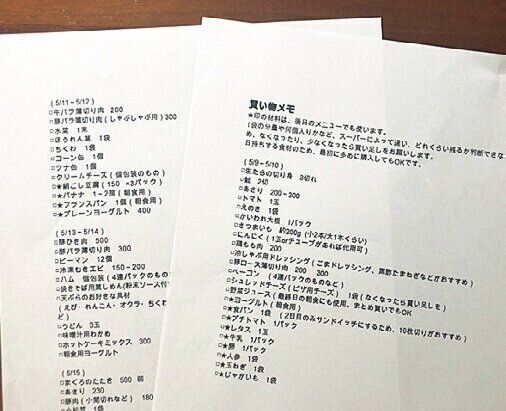 (5/11~5/12)
□牛バラ薄切り肉 200
□豚バラ薄切り肉(しゃぶしゃぶ用)300
□水菜 1束
□ほうれん草 1袋
□ちくわ 1袋
□コーン缶 1個
□ツナ缶 1個
□クリームチーズ(個包装のもの)
□★絹ごし豆腐(150 ×3パック)
□★バナナ 1~2房(朝食用)
□★フランスパン 1個(朝食用)
□★プレーンヨーグルト 400
(5/13~5/14)
□豚ひき肉 500
□豚バラ薄切り肉 300
□ピーマン 12個
□冷凍むきエビ 150~200
□ハム 個包装(4連パックのもの
□焼きそば用蒸しめん(粉末ソース付
□天ぷらのお好きな具材
(えび、れんこん、オクラ、ちくわ
ど)
□うどん 3玉
□味噌汁用わかめ
□ホットケーキミックス 300
□朝食用ヨーグルト
(5/15)
□まぐろのたたき 500 弱
□あさり 230
□豚肉(小間切れなど) 180
買い物メモ
★印の材料は、後日のメニューでも使います。
1袋の分量や何個入りかなど、スーパーによって違い、どれくらい残るか判断できな
め、なくなったり、少なくなったら買い足しをお願いします。
日持ちする食材のため、最初に多めに購入してもOKです。
(5/9~5/10)
□生たらの切り身 3切れ
□鮭 2切
□あさり 200~300
□トマト 1玉
□えのき 1袋
□かいわれ大根 1パック
□さつまいも 約200g(小2本/大1本くらい)
□にんにく(1玉orチューブがあれば代用可)
□鶏もも肉 200
□冷しゃぶ用ドレッシング(ごまドレッシング、黒酢たまねぎなどがおすすめ)
□豚ロース薄切り肉 200 300
□ベーコン (4連パックのものなど)
□シュレッドチーズ(ピザ用チーズ) 1袋(なくなったら買い足しを)
□野菜ジュース(最終日の朝食にも使用。まとめ買いでもOK)
□★ヨーグルト(朝食用)
□★食パン 1袋 (2日目のみサンドイッチにするため、10枚切りがおすすめ)
□★プチトマト 1パック
□★レタス 1玉
□★牛乳 1パック
□★卵 1パック
□★人参 1袋
□★玉ねぎ 1袋
□★じゃがいも 1袋